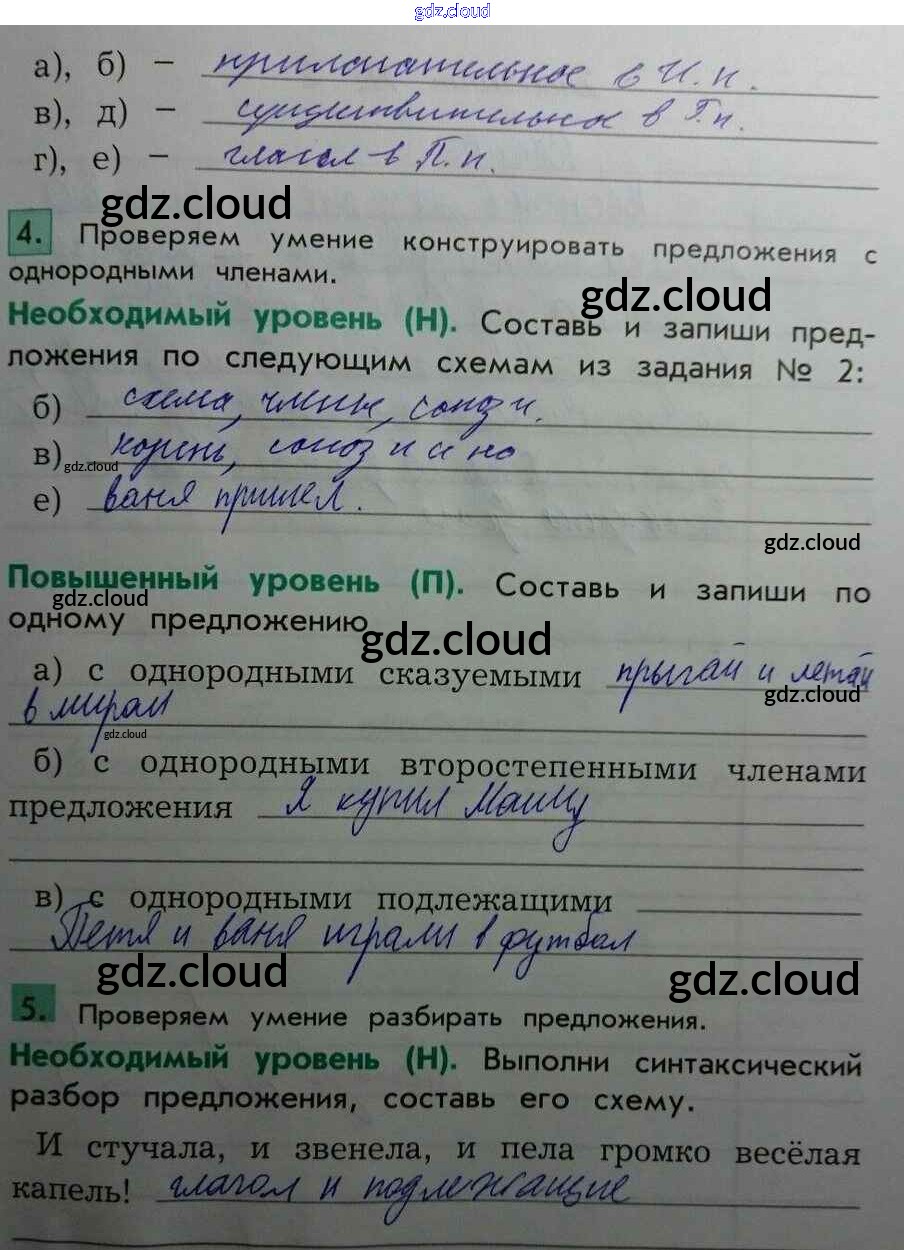 gdz.cloud
а), б) – прилагательное в И.п.
в), д) – существительное в Р.п.
г), е) – глагол в П.п.
gdz.cloud
4. Проверяем умение конструировать предложения с
однородными членами.
gdz.cloud
Необходимый уровень (Н). Составь и запиши пред-
ложения по следующим схемам из задания № 2:
б) схема, члены, союз и.
в) корень, союз и и но
gdz.cloud
е) ваня пришел.
gdz.cloud
Повышенный уровень (П). Составь и запиши по
gdz.cloud
одному предложению
gdz.cloud
а) с однородными сказуемыми прыгай и летай
gdz.cloud
в мирам
gdz.cloud
б) с однородными второстепенными членами
предложения Я купил Машу
в) с однородными подлежащими
Петя и ваня играли в футбол
gdz.cloud
gdz.cloud
5. Проверяем умение разбирать предложения.
Необходимый уровень (Н). Выполни синтаксический
разбор предложения, составь его схему.
И стучала, и звенела, и пела громко весёлая
капель! глагол и подлежащие